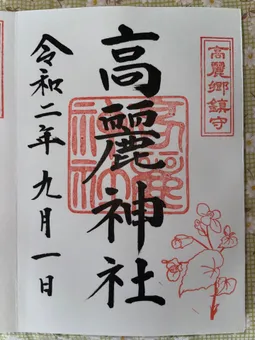 高麗郷鎮守
高麗神社
令和二年九月一日